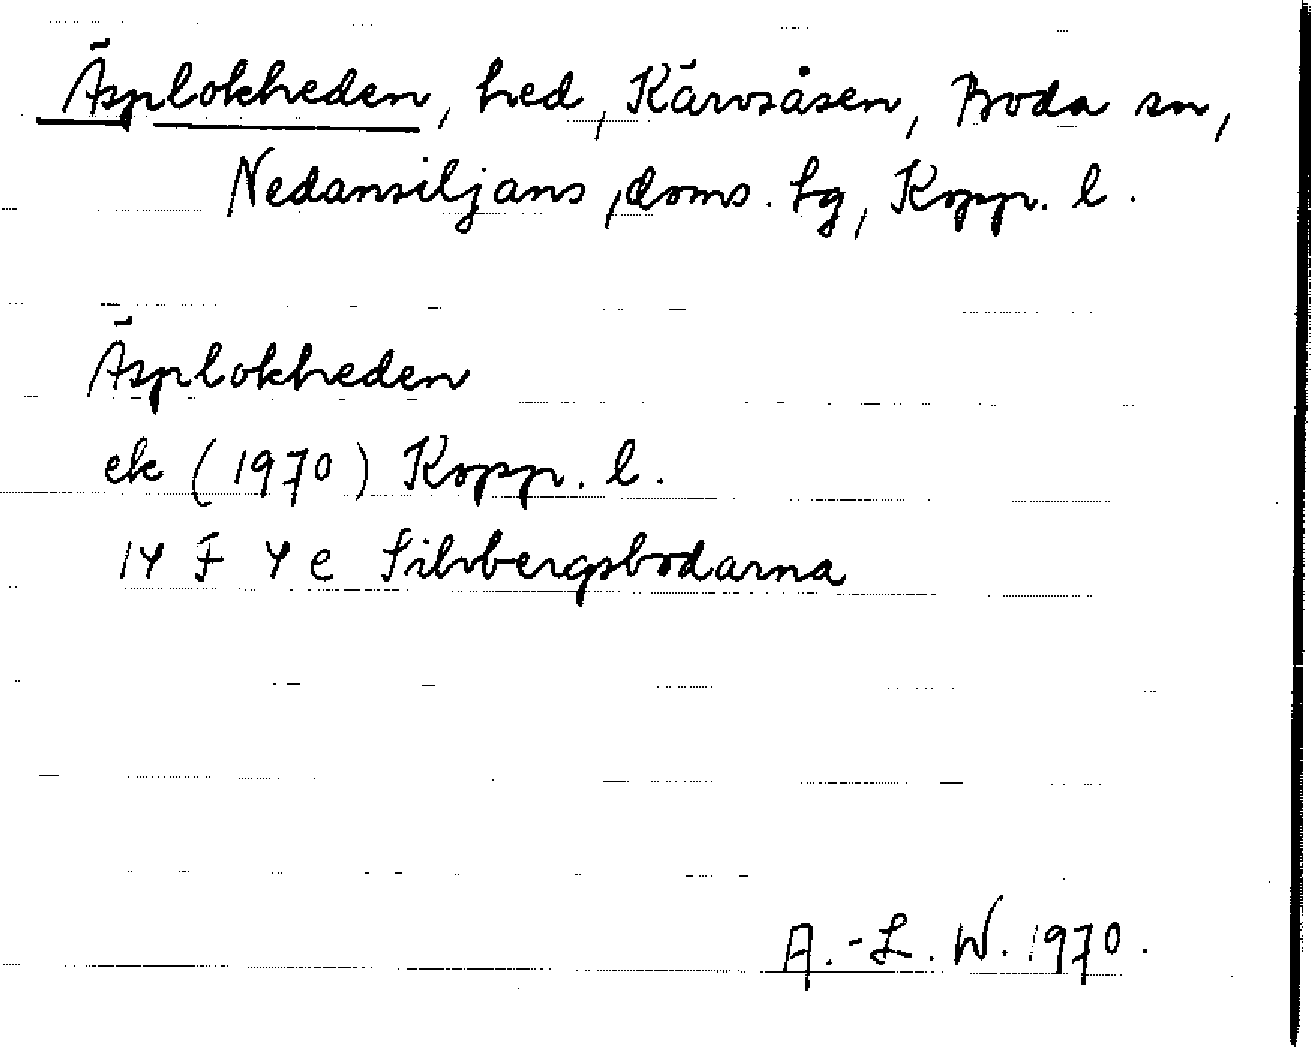 Äsplokheden, hed, Kärvsåsen, Boda sn,
Nedansiljans, doms. hg, Kopp. l.
Äsplokheden
ek (1970) Kopp. l.
14 F 4 e Silvbergsbodarna
A.-L. W. 1970.